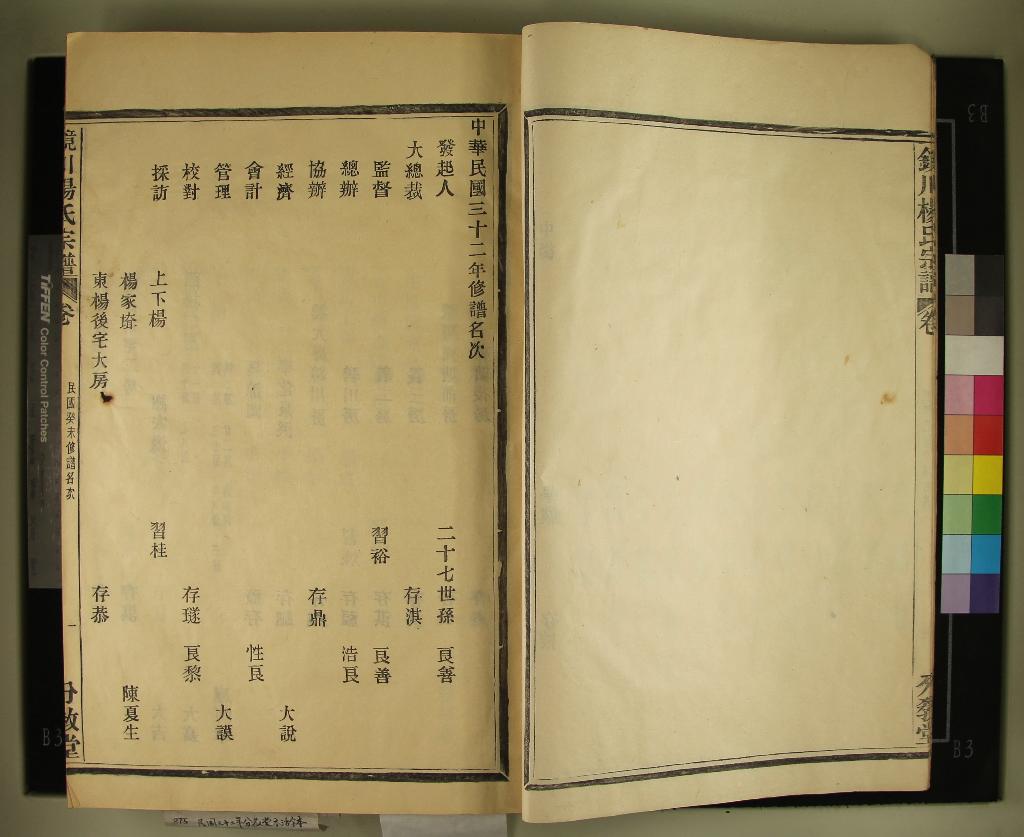 中華民國三十二年修譜名次
發起人 二十七世孫 良善
大總裁 存淇
監督 習裕 良善
總辦 浩良
協辦 存鼎
經濟 大說
會計 性良
管理 大謨
校對 存璲 良黎
採訪 上下楊 習桂
楊家㙇 陳夏生
東楊後宅大房 存恭
鏡川楊氏宗譜 卷 民國癸未修譜名次 一
鏡川楊氏宗譜 卷
TIFFEN Color Control Patches
B3
B3
B3